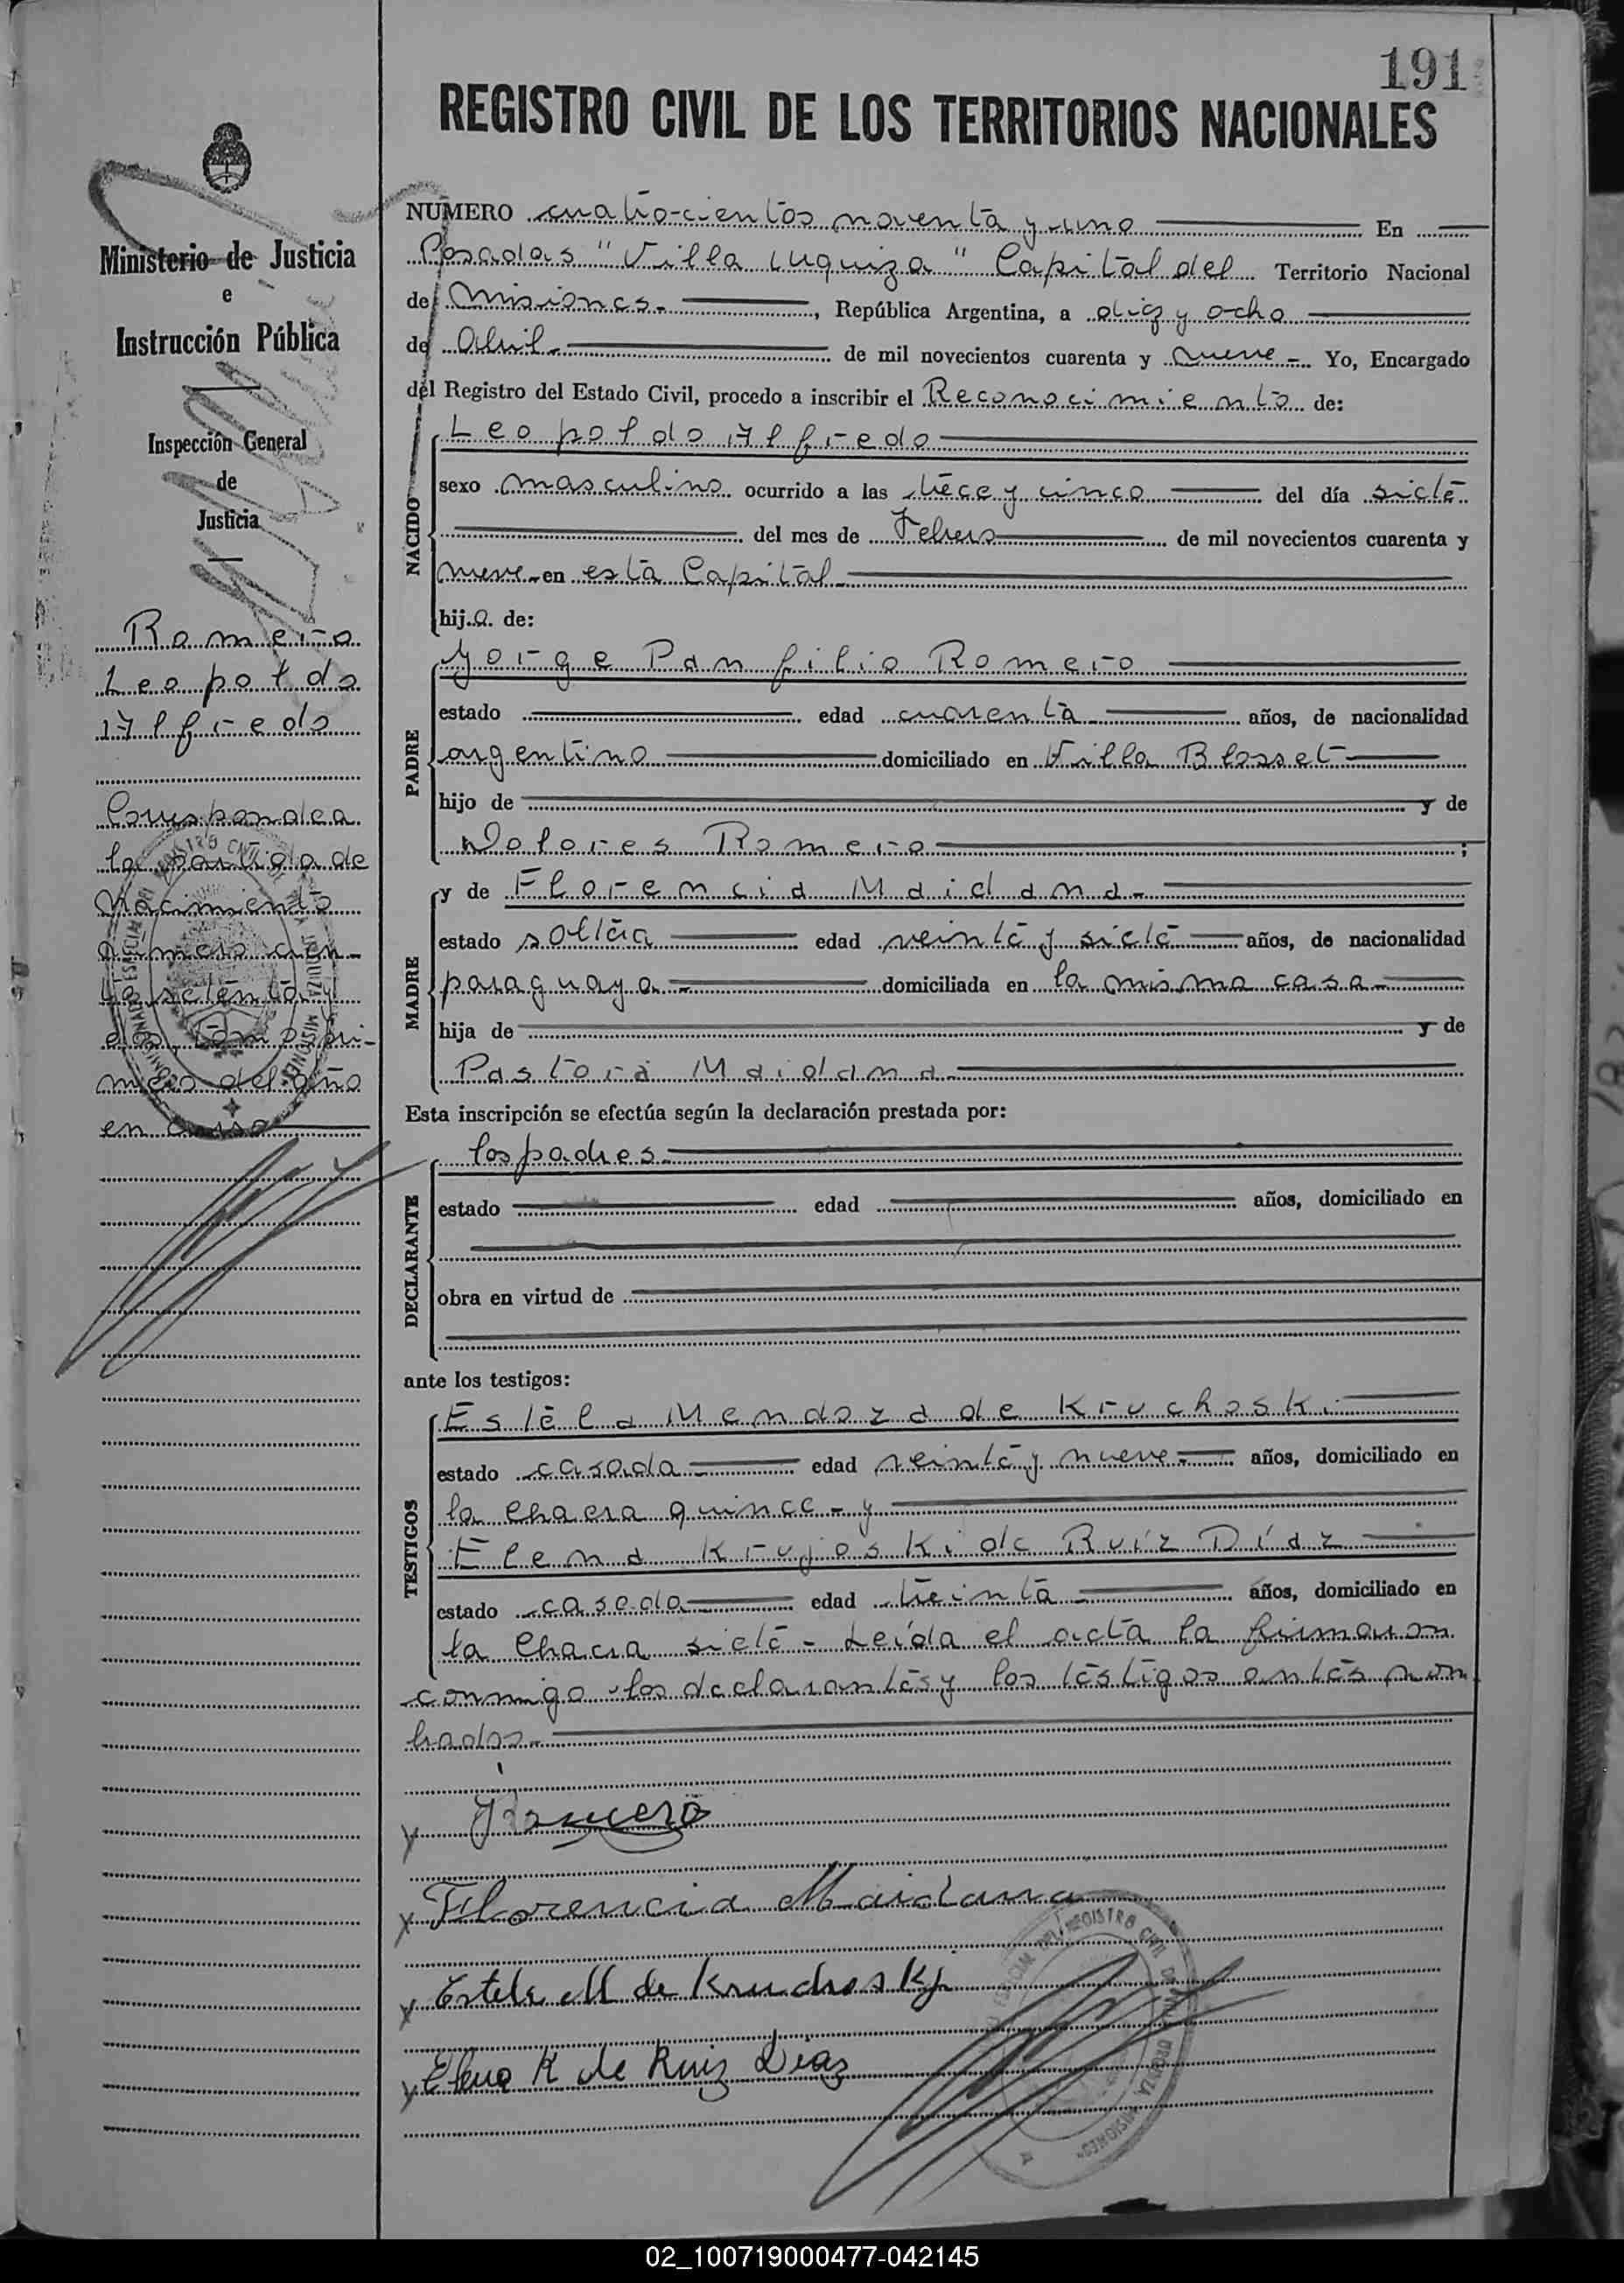 191
REGISTRO CIVIL DE LOS TERRITORIOS NACIONALES
Ministerio de Justicia
e
Instrucción Pública
Inspección General
de
Justicia
Romero
Leopoldo
Alfredo
Corresponde a
la partida de
Nacimiento
número cien-
to setenta y
dos, tomo pri-
mero del año
en curso
NUMERO cuatro-cientos noventa y uno En
Posadas "Villa Urquiza" Capital del Territorio Nacional
de Misiones.-, República Argentina, a diez y ocho
de Abril- de mil novecientos cuarenta y nueve- Yo, Encargado
del Registro del Estado Civil, procedo a inscribir el Reconocimiento de:
NACIDO
Leopoldo Alfredo
sexo masculino ocurrido a las trece y cinco del día siete
del mes de Febrero de mil novecientos cuarenta y
nueve-en esta Capital-
hijo de:
PADRE
Jorge Panfilio Romero
estado edad cuarenta- años, de nacionalidad
argentino domiciliado en Villa Blosset-
hijo de y de
Dolores Romero ;
MADRE
y de Florencia Maidana-
estado soltera edad veinte y siete años, de nacionalidad
paraguaya- domiciliada en la misma casa-
hija de y de
Pastora Maidana-
Esta inscripción se efectúa según la declaración prestada por:
DECLARANTE
los padres-
estado edad años, domiciliado en
obra en virtud de
ante los testigos:
TESTIGOS
Estela Mendoza de Kruchoski
estado casada- edad veinte y nueve- años, domiciliado en
la chacra quince- y
Elena Krujoski de Ruíz Díaz
estado casada edad treinta- años, domiciliado en
la Chacra siete- Leída el acta la firmaron
conmigo los declarantes y los testigos antes nom
brados.-
x JRomero
x Florencia Maidana
x Estela M de Kruchosky
x Elena K de Ruiz Diaz
02_100719000477-042145